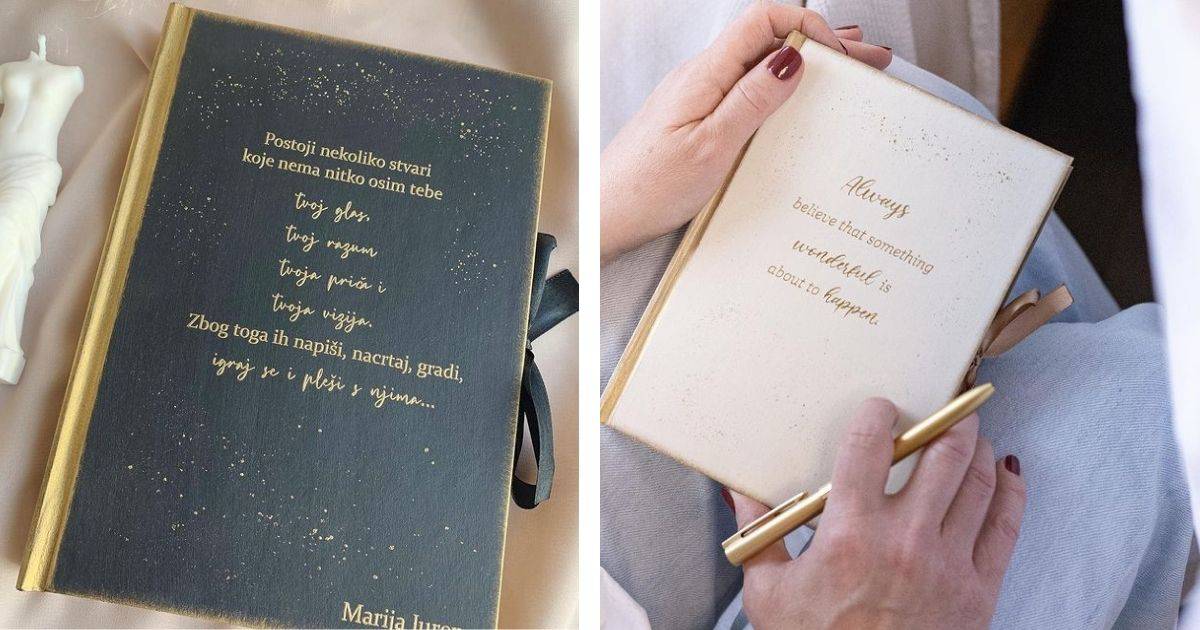 Postoji nekoliko stvari
koje nema nitko osim tebe
tvoj glas,
tvoj razum
tvoja priča i
tvoja vizija.
Zbog toga ih napiši, nacrtaj, gradi,
igraj se i pleši s njima...
Marija
Always
believe that something
wonderful is
about to happen.